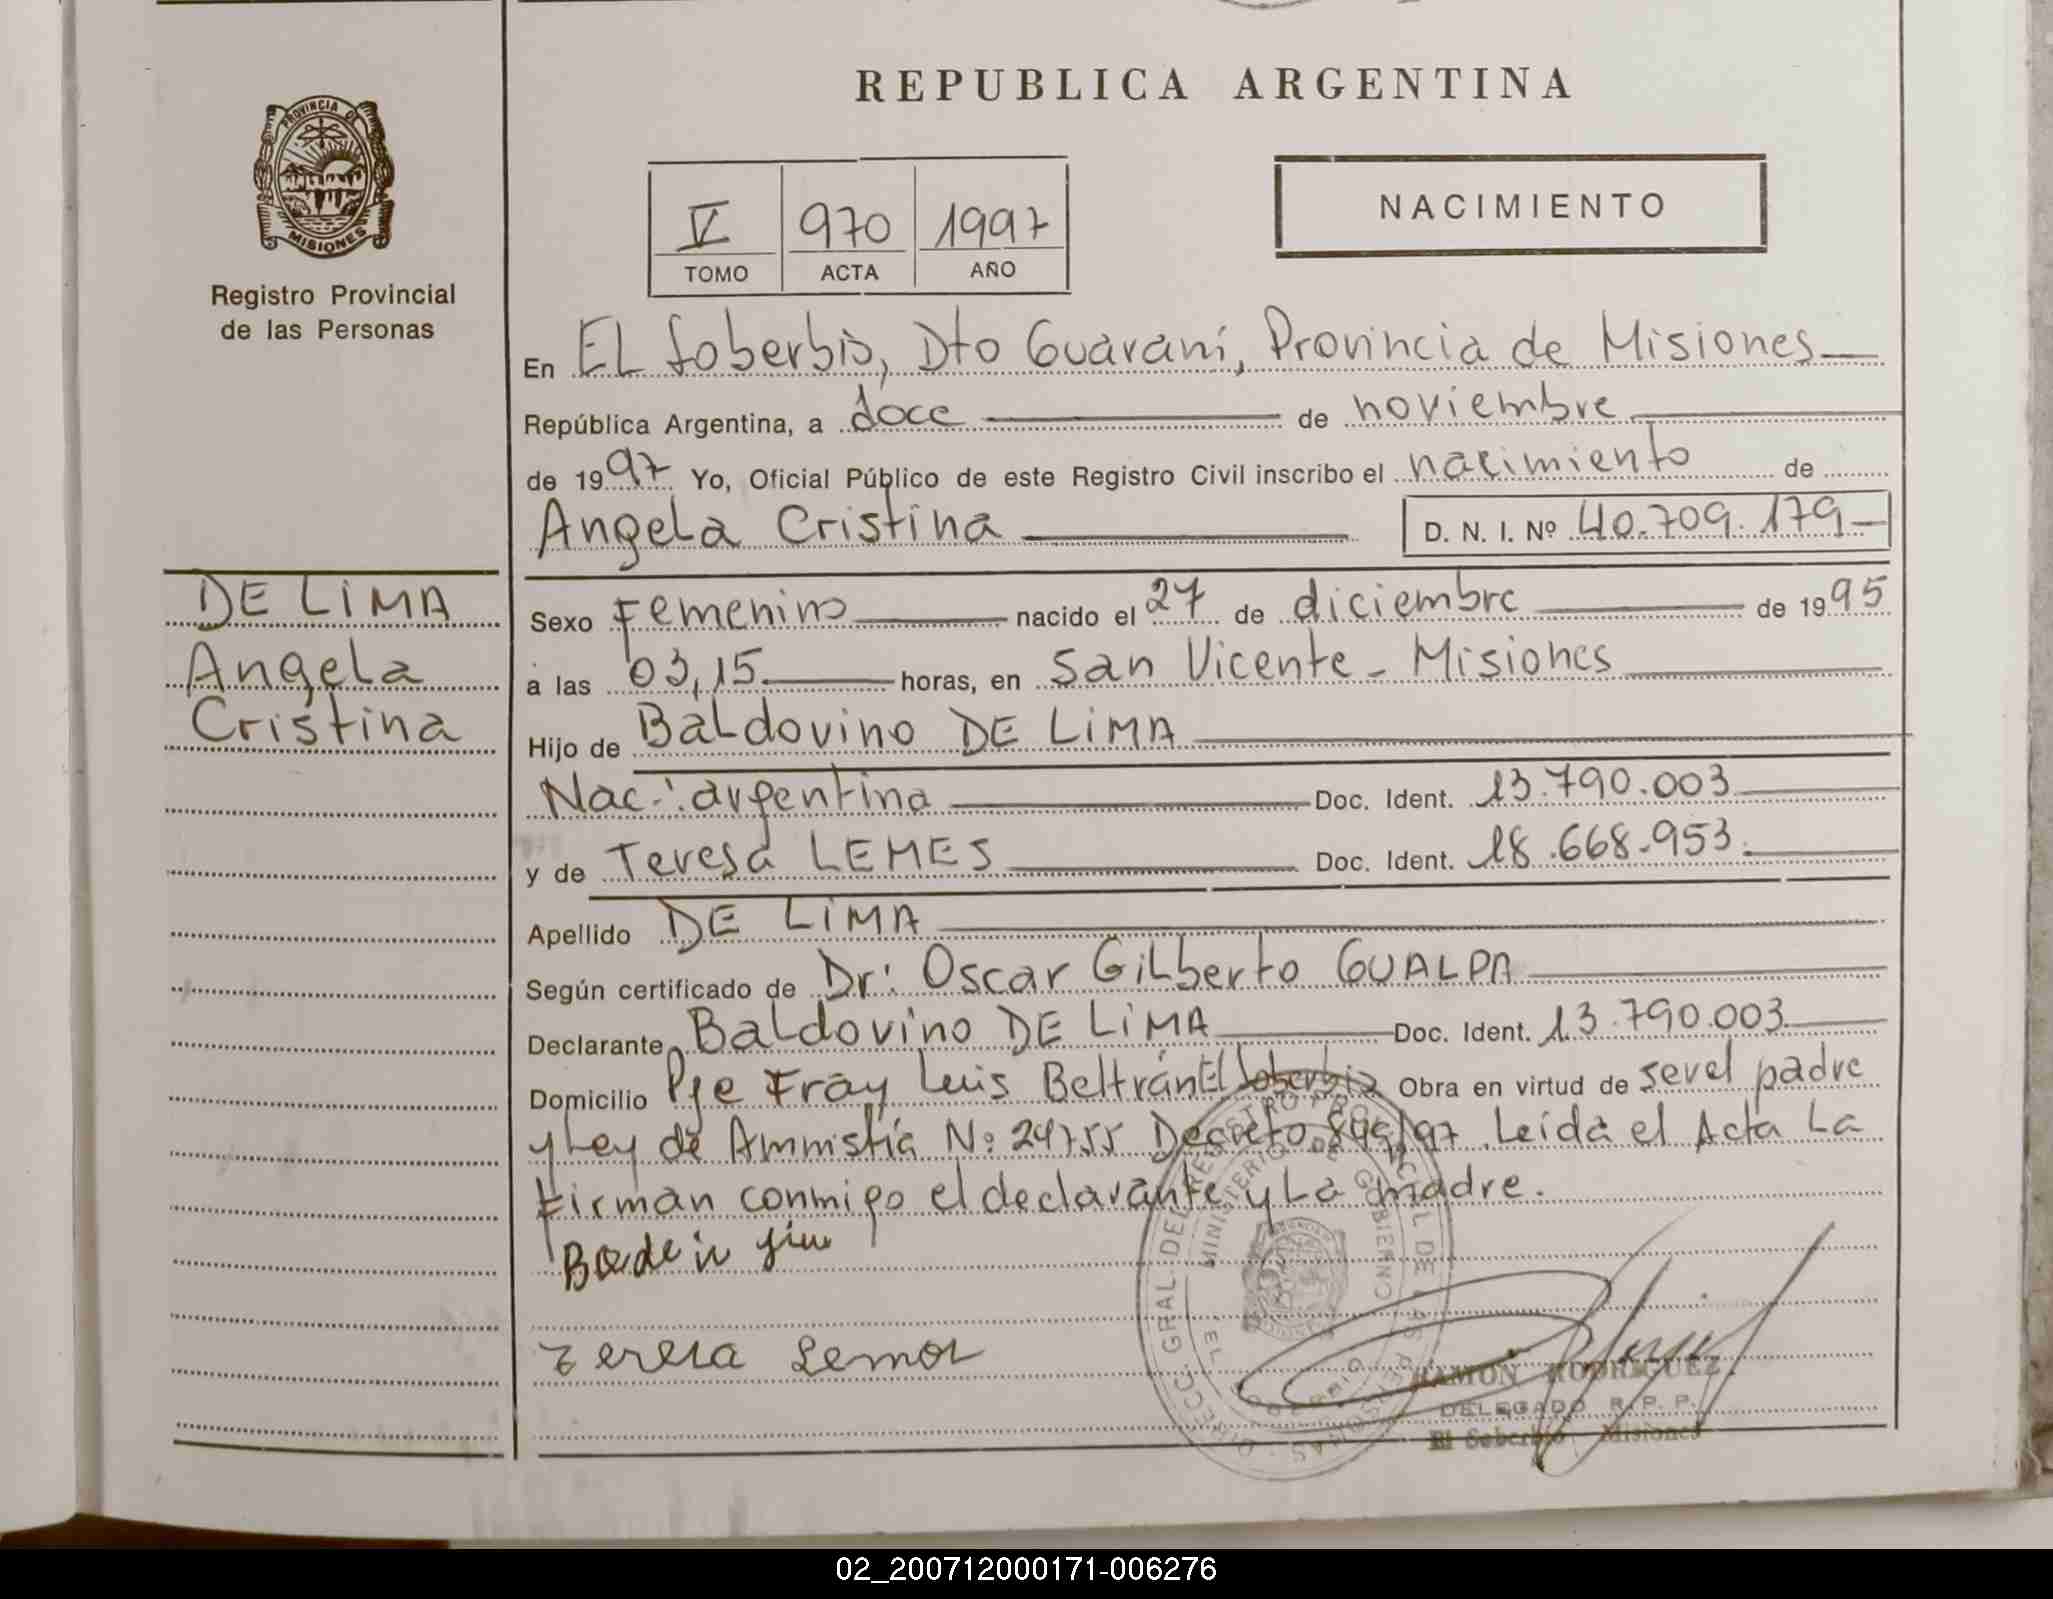 REPUBLICA ARGENTINA
PROVINCIA DE
MISIONES
Registro Provincial
de las Personas
V 970 1997
TOMO ACTA AÑO
NACIMIENTO
En EL Soberbio, Dto Guaraní, Provincia de Misiones
República Argentina, a doce de noviembre
de 1997 Yo, Oficial Público de este Registro Civil inscribo el nacimiento de
Angela Cristina D. N. I. Nº 40.709.179
DE LIMA
Angela
Cristina
Sexo Femenino nacido el 27 de diciembre de 1995
a las 03,15 horas, en San Vicente - Misiones
Hijo de Baldovino DE LIMA
Nac.: argentina Doc. Ident. 13.790.003
y de Teresa LEMES Doc. Ident. 18.668.953
Apellido DE LIMA
Según certificado de Dr: Oscar Gilberto GUALPA
Declarante Baldovino DE LIMA Doc. Ident. 13.790.003
Domicilio Pje Fray Luis Beltrán El Soberbio Obra en virtud de ser el padre
y Ley de Ammistía Nº 24755 Decreto /97. Leída el Acta La
Firman conmigo el declarante y La madre.
Teresa Lemos
DIRECC. GRAL. DEL REGISTRO PROVINCIAL DE LAS PERSONAS
MINISTERIO DE GOBIERNO
EL SOBERBIO
RAMON RODRIGUEZ
DELEGADO R. P. P.
El Soberbio Misiones
02_200712000171-006276